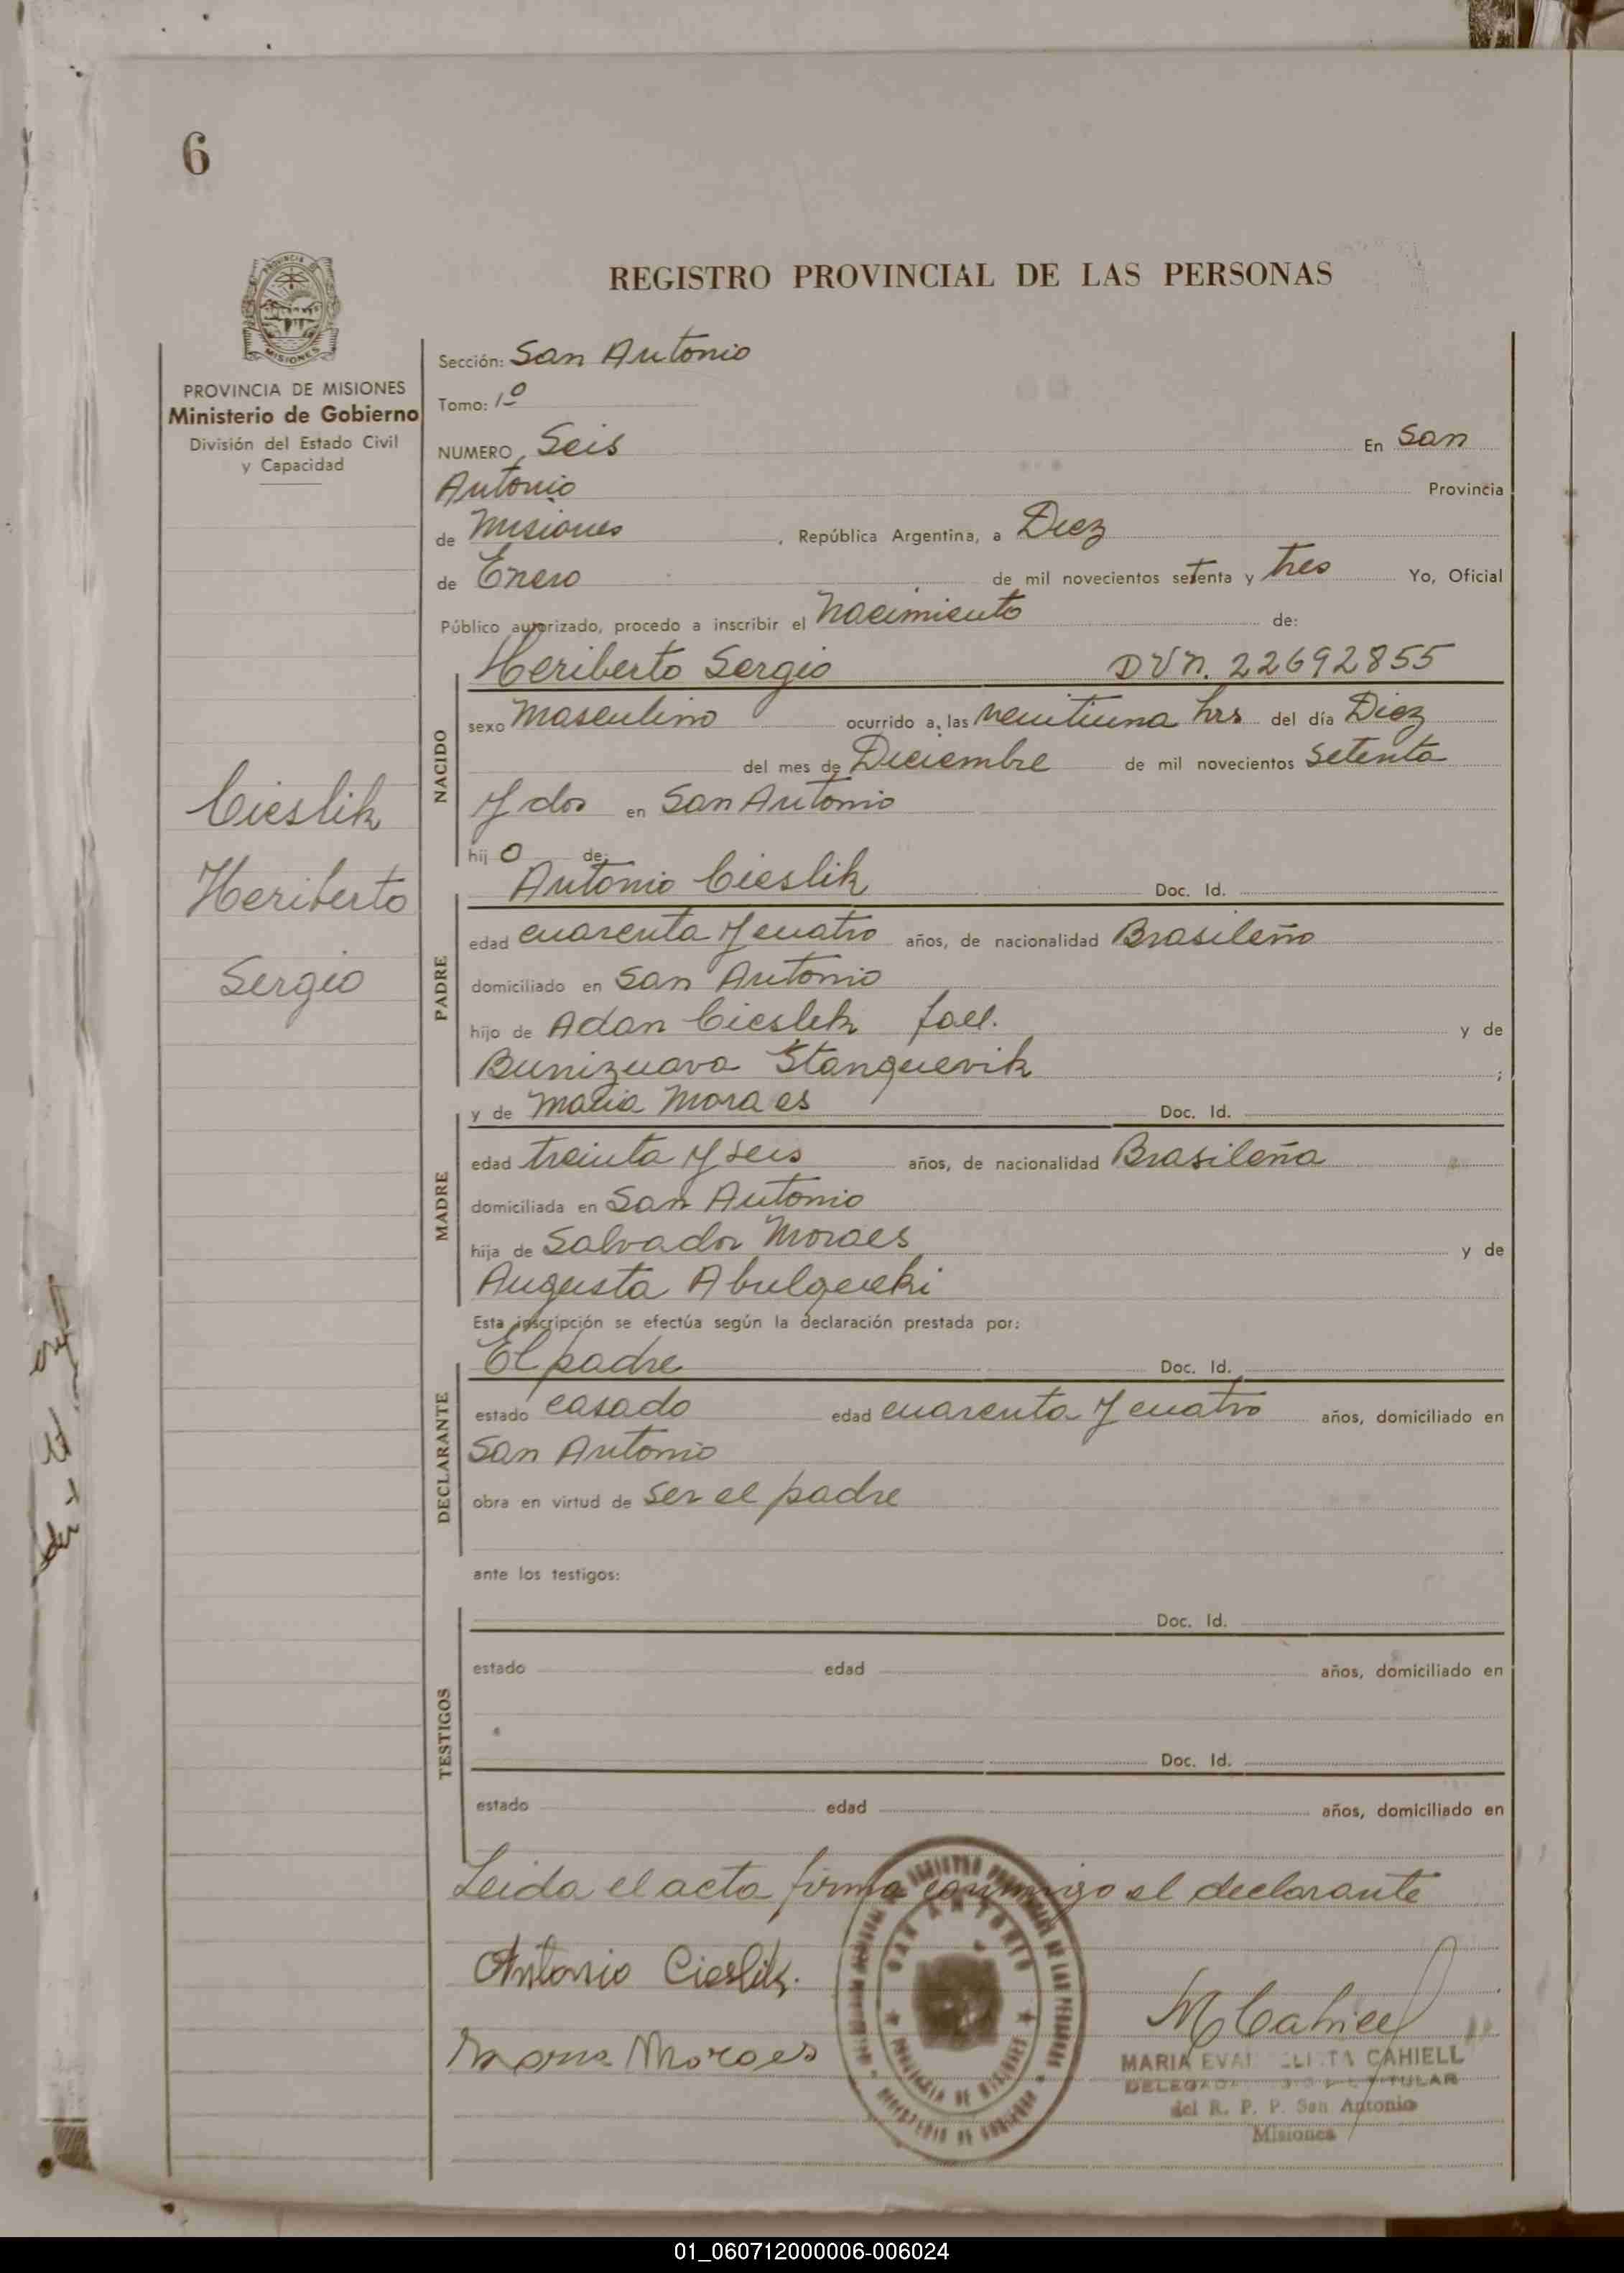 6
PROVINCIA DE
MISIONES
REGISTRO PROVINCIAL DE LAS PERSONAS
PROVINCIA DE MISIONES
Ministerio de Gobierno
División del Estado Civil
y Capacidad
Cieslik
Heriberto
Sergio
Sección: San Antonio
Tomo: 1º
NUMERO Seis En San
Antonio Provincia
de Misiones , República Argentina, a Diez
de Enero de mil novecientos setenta y tres Yo, Oficial
Público autorizado, procedo a inscribir el nacimiento de:
NACIDO
Heriberto Sergio DUN. 22692855
sexo masculino ocurrido a las veintiuna hrs del día Diez
del mes de Diciembre de mil novecientos setenta
y dos en San Antonio
hij o de:
PADRE
Antonio Cieslik Doc. Id.
edad cuarenta y cuatro años, de nacionalidad Brasileño
domiciliado en San Antonio
hijo de Adan Cieslik fall. y de
Bunizuava Stanquevik ;
MADRE
y de Maria Moraes Doc. Id.
edad treinta y seis años, de nacionalidad Brasileña
domiciliada en San Antonio
hija de Salvador Moraes y de
Augusta
Esta inscripción se efectúa según la declaración prestada por:
DECLARANTE
El padre Doc. Id.
estado casado edad cuarenta y cuatro años, domiciliado en
San Antonio
obra en virtud de ser el padre
ante los testigos:
TESTIGOS
Doc. Id.
estado edad años, domiciliado en
Doc. Id.
estado edad años, domiciliado en
Leida el acta firma conmigo el declarante
Antonio Cieslik.
Maria Moraes
SAN ANTONIO
PROVINCIA DE MISIONES
MINISTERIO DE GOBIERNO
M Cahiell
MARIA CAHIELL
TITULAR
del R. P. P. San Antonio
Misiones
01_060712000006-006024